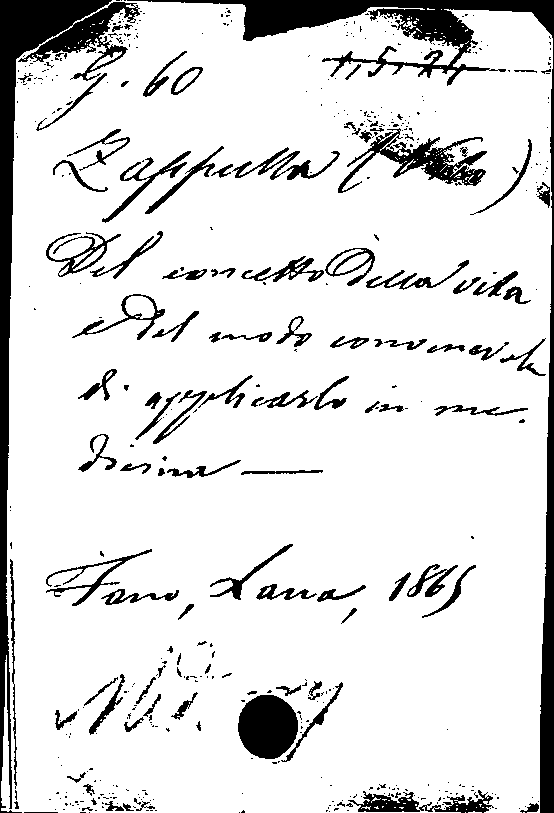 G. 60 1,5,24
Zappella (Vito)
Del concetto della vita
e del modo convenevole
di applicarlo in me-
dicina —
Fano, Lana, 1865
Med.